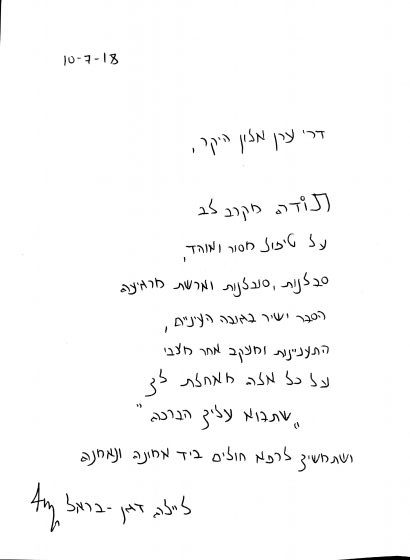 10-7-18
דר' ערן מלון היקר,
תודה מקרב לב
על טיפול חסור ומוהד,
סבלנות, סובלנות ומרשת מרגיעה
הסבר ישיר בגובה העיניים,
התעניינות ומעקב אחר מצבי
על כל מלה מאחלת לך
"שתבוא עליך הברכה"
ושתמשיך לרפא חולים ביד מחונה ונמחנה
לילה דגן - בראל